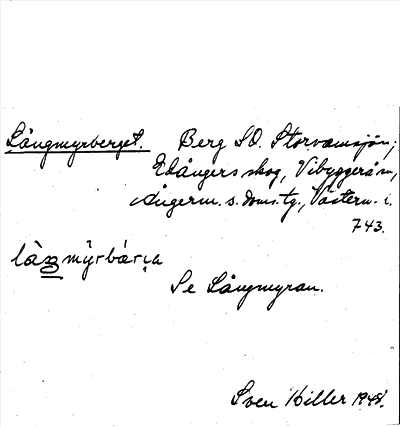 Långmyrberget. Berg SO. Storvamsjön,
Edångers skog, Vibyggerå sn,
Ångerm. s. doms.tg., Västern. l.
743.
Se Långmyran.
Sven Hiller 1948.